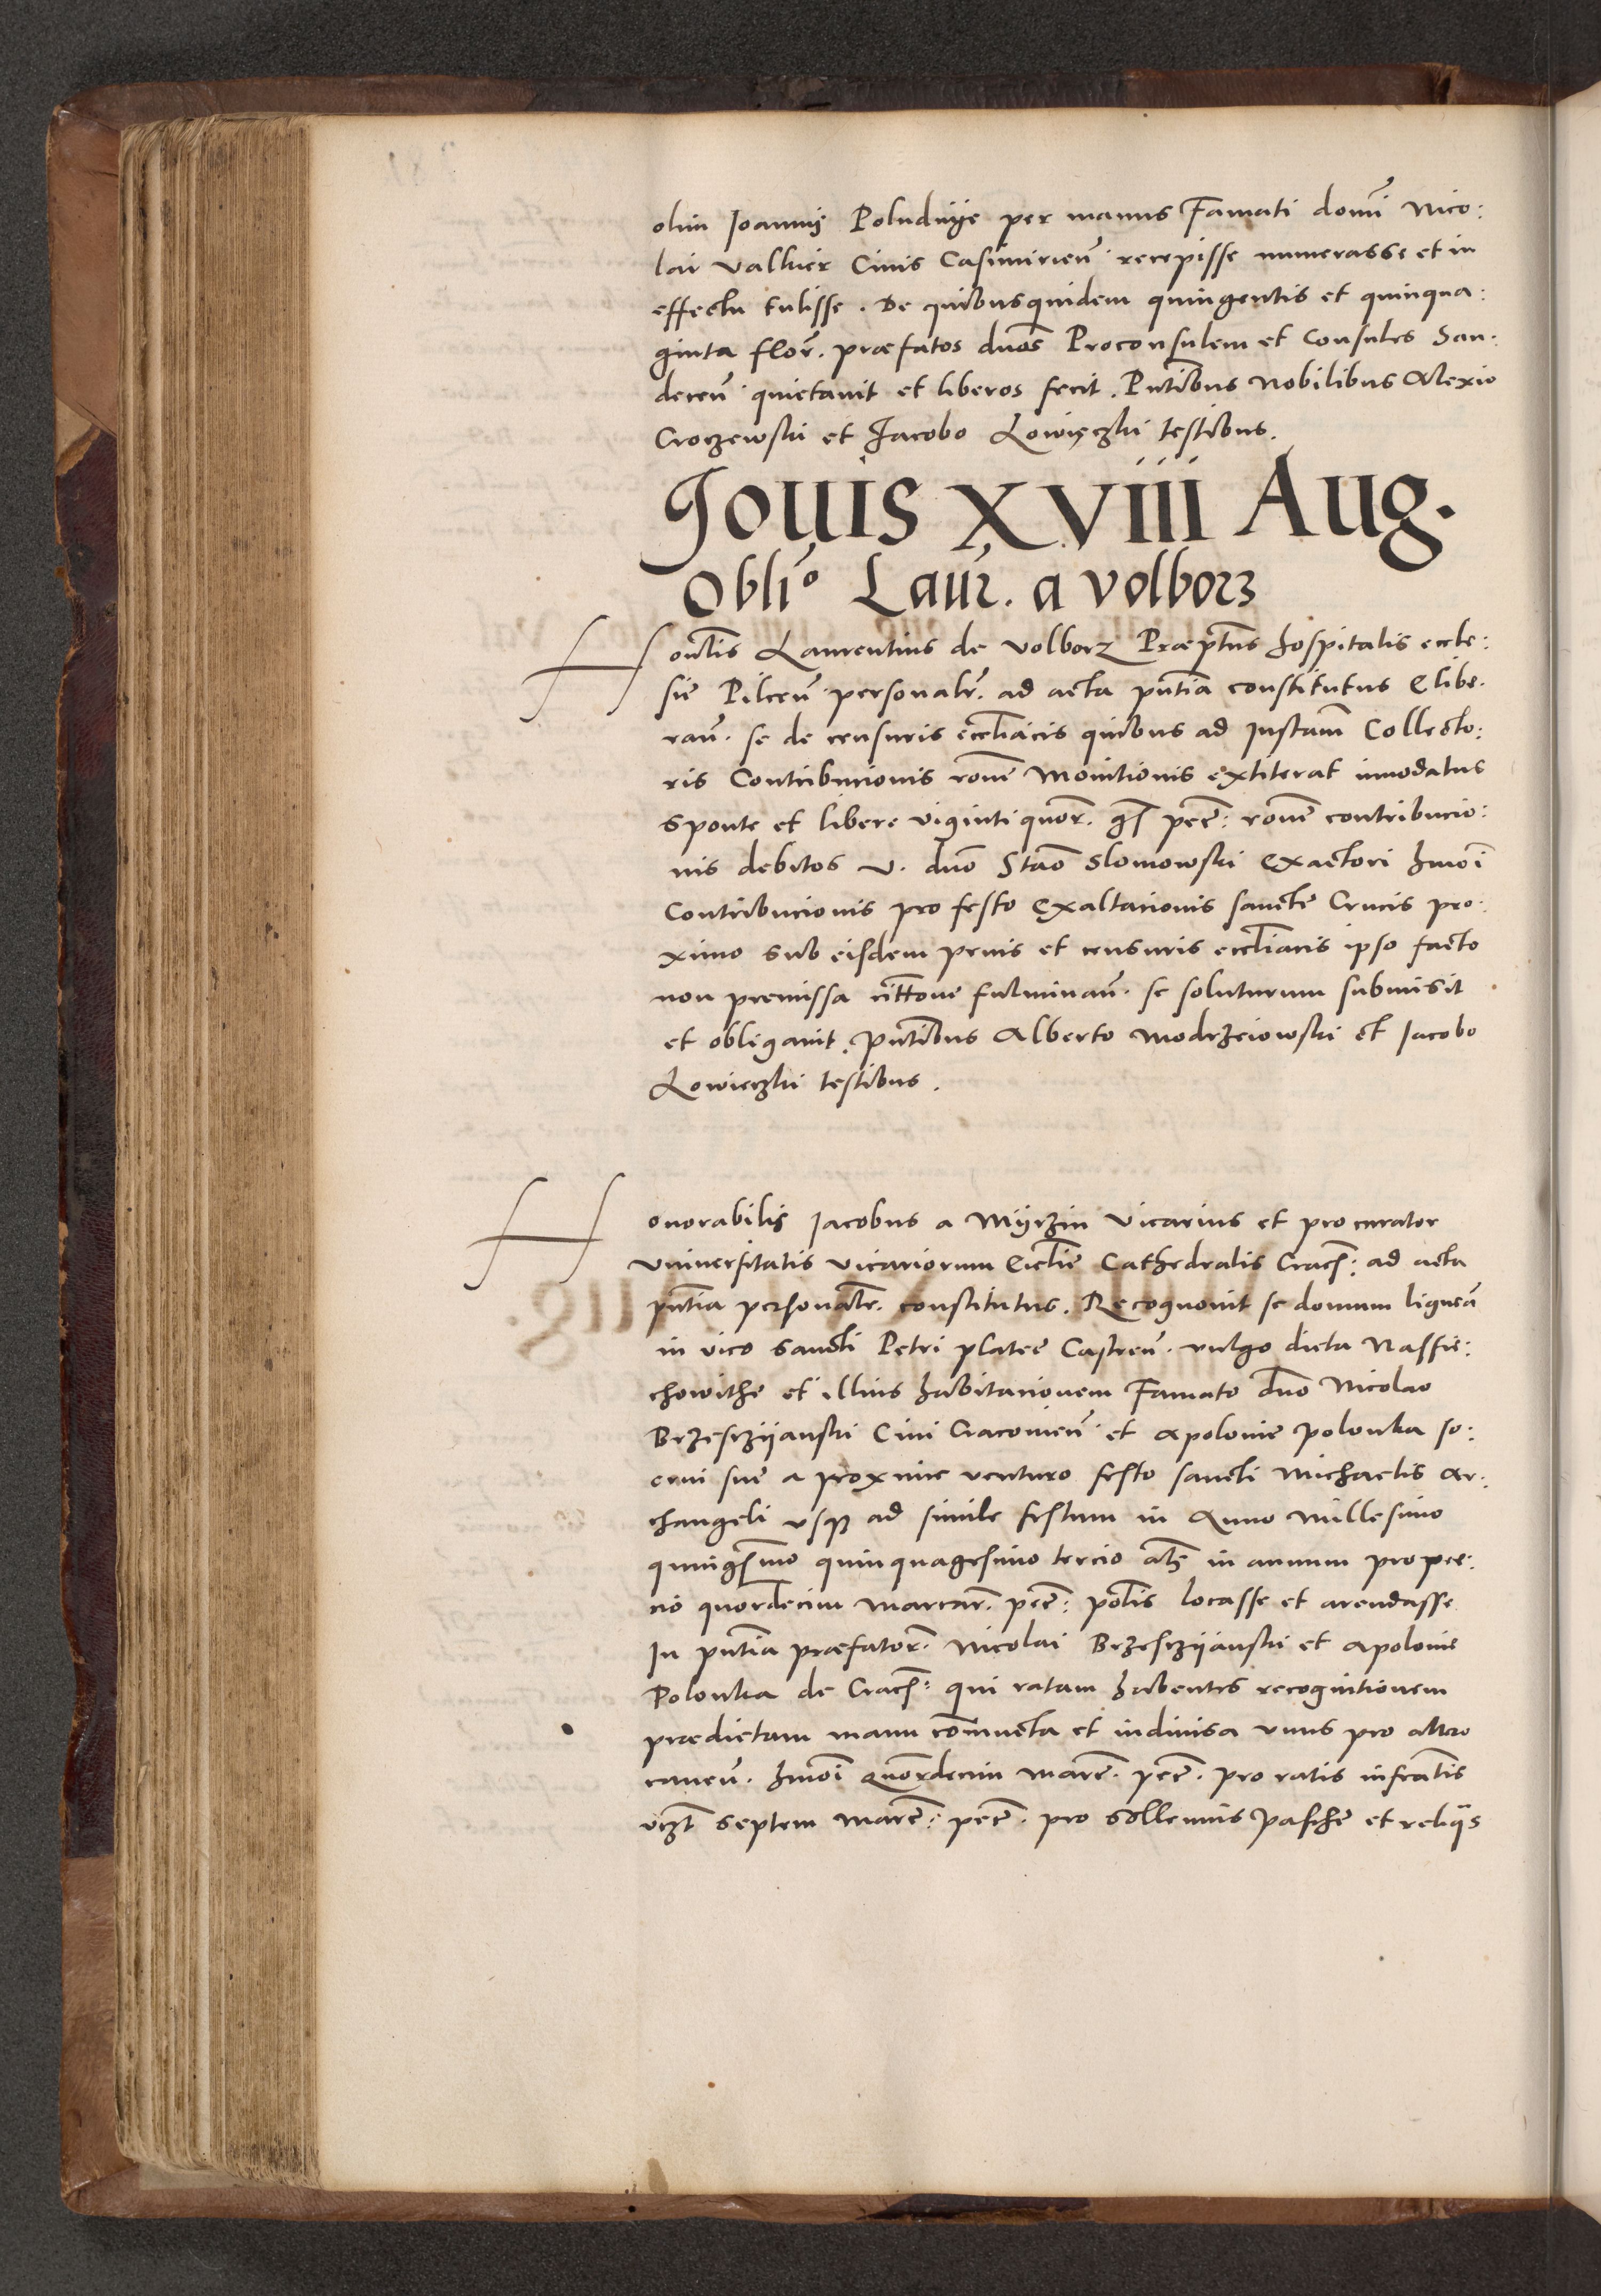 olim Joannis Poludnije per manus Famati domi Nico:
lai Valkier Civis Casimirien̄ recepisse numerasse et in
effectu tulisse. De quibusquidem quingentis et quinqua:
ginta flor̄. præfatos dnos Proconsulem et Consules San:
decen̄ quietavit et liberos fecit. Pntibus Nobilibus Alexio
Croczewski et Jacobo Lowięczki testibus.
Jouis XViiii Aug.
Oblio Laur. a Volborz
Honlis Laurentius de Volborz Præptus hospitalis eccle:
sie Pilcen̄ personalr̄. ad acta pntia constitutus Elibe.
ran̄. se de censuris eccliacis quibus ad Instam̄ Collecto:
ris Contribucionis rone Monitionis extiterat innodatus
sponte et libere viginti quor̄. gs pec̄: rone contribucio:
nis debitos V. dno Stao Slomowski Exactori hmoi
Contribucionis pro festo Exaltacionis sancte Crucis pro:
ximo sub eisdem penis et censuris eccliacis ipso facto
non premissa fulminan̄. se soluturum submisit
et obligavit. Pntibus Alberto Modrzeiowski et Jacobo
Lowieczki testibus.
Honorabilis Jacobus a Myrzin Vicarius et procurator
Universitatis vicariorum Ecclie Cathedralis Crac: ad acta
pntia personalr̄. constitutus. Recognovit se domum ligneā
in vico Sancti Petri platee Castren̄. vulgo dicta Naffie:
chowithe et illius habitacionem Famato dno Nicolao
Brzesczijanski Civi Cracovien̄ et Apolonie Polonka so:
crui sue a proxime venturo festo sancti Michaelis Ar:
changeli usqз ad simile festum in Anno Millesimo
quingsimo quinquagesimo tercio als in annum pro pre:
cio quordecim Marcar̄. pec̄: polis locasse et arendasse
In pntia præfator̄. Nicolai Brzesczijanski et Apolonie
Polonka de Crac: qui ratam habentes recognitionem
prædictam manu coniuncta et indivisa unus pro altero
caven̄. hmoi Quordecim marc̄. pec̄. pro ratis infratis
vizt septem marc̄: pec̄. pro sollemnis Pasche et reliqis